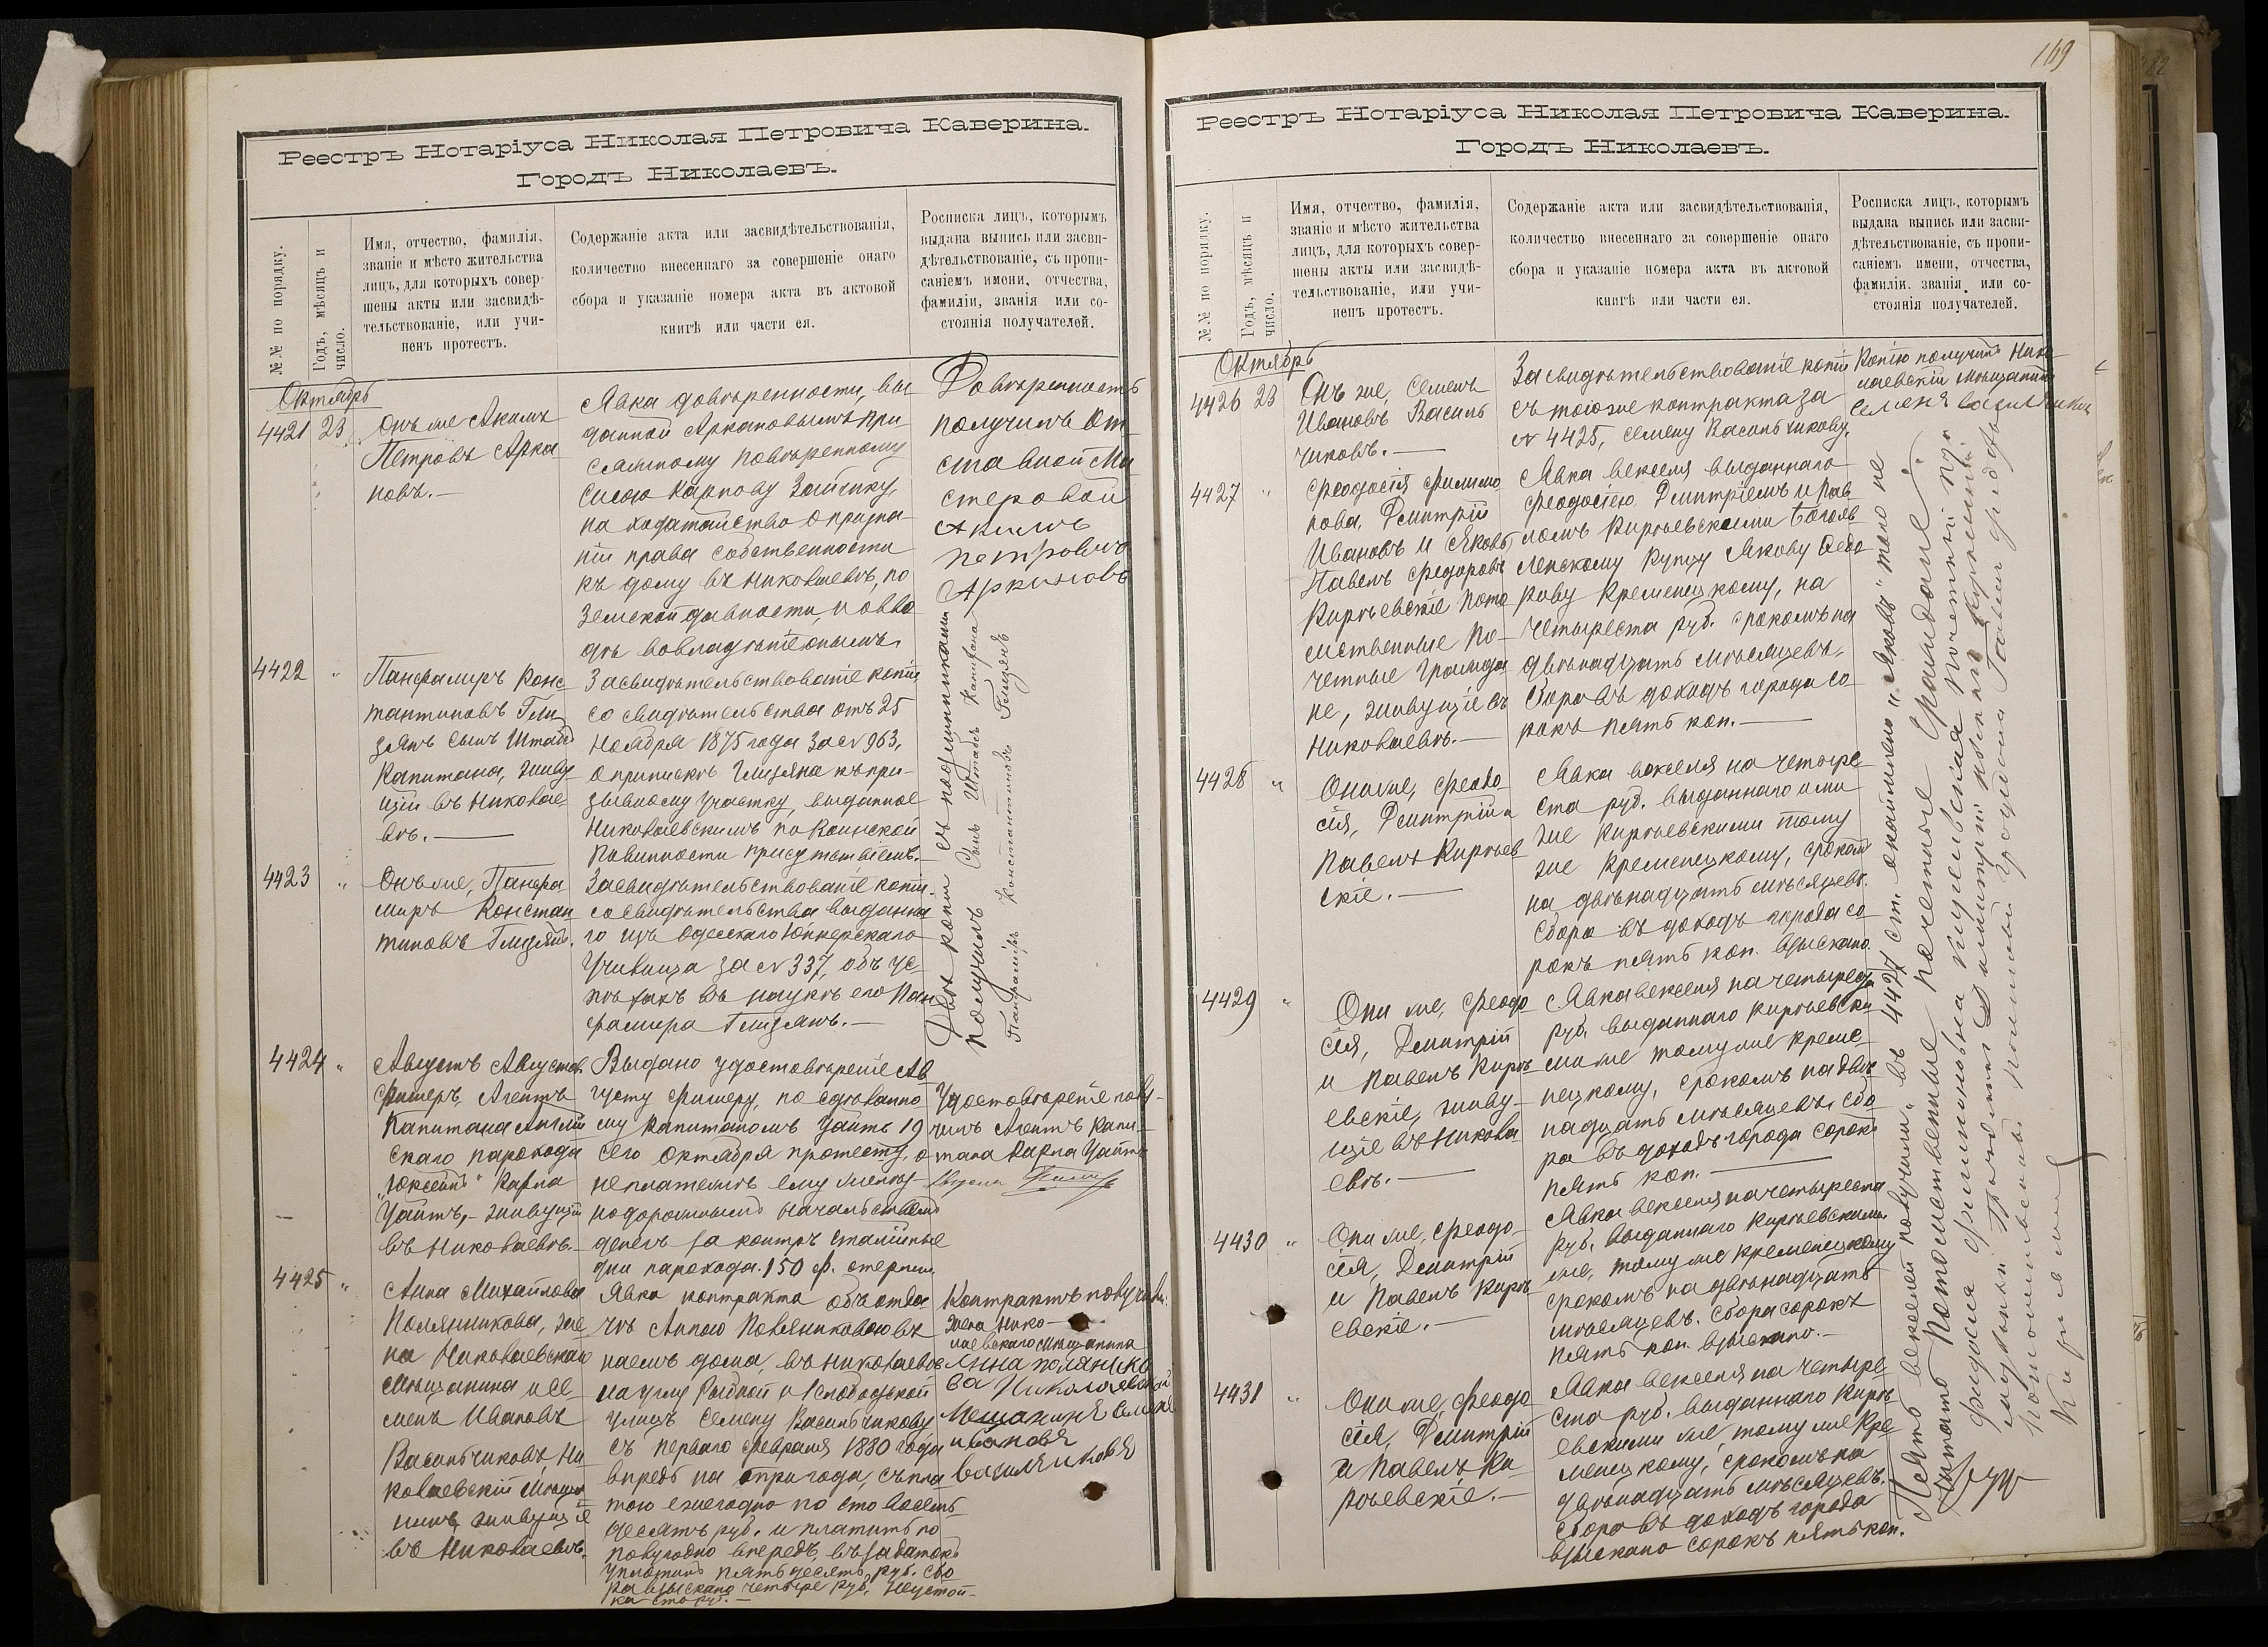 Реестръ Нотаріуса Николая Петровича Каверина.
Городъ Николаевъ.
№№ по порядку.
Годъ, мѣсяцъ и
число.
Имя, отчество, фамилія,
званіе и мѣсто жительства
лицъ, для которыхъ совер-
шены акты или засвидѣ-
тельствованіе, или учи-
ненъ протестъ.
Содержаніе акта или засвидѣтельствованія,
количество внесеннаго за совершеніе онаго
сбора и указаніе номера акта въ актовой
книгѣ или части ея.
Росписка лицъ, которымъ
выдана выпись или засви-
дѣтельствованіе, съ пропи-
саніемъ имени, отчества,
фамиліи, званія или со-
стоянія получателей.
Октябрь
4421 23
Онъ же Акимъ
Петровъ Арка
новъ.—
Явка довѣренности, вы
данной Аркановымъ при
сяжному повѣренному
Сысою Карпову Зайчику,
на ходатайство о призна-
ніи права собственности
къ дому въ Николаевѣ, по
земской давности, и о вво
дѣ во владѣніе онымъ.
Довѣренность
получилъ От
ставной Ма
стеровой
Акимъ
Петровичъ
Аркановъ
4422 "
Панфамиръ Конс
тантиновъ Гли
зянъ сынъ Штабсъ
Капитана, живу
щій въ Николае
вѣ.—
Засвидѣтельствованіе копіи
со свидѣтельства отъ 25
Ноября 1875 года за № 963,
о припискѣ Глизяна къ при-
зывному участку, выданное
Николаевскимъ по Воинской
Повинности присутствіемъ.—
4423 "
Онъ же, Панфа
миръ Констан
тиновъ Глизянъ.
Засвидѣтельствованіе копіи
со свидѣтельства выданна
го изъ Одесскаго Юнкерскаго
Училища за № 337, объ ус-
пѣхахъ въ наукѣ его Пан
фамира Глизянъ.—
Двѣ копіи съ подлинниками
получилъ Сынъ Штабсъ Капитана
Панфамиръ Константиновъ Глизянъ
4424 "
Августъ Августов
Фишеръ, Агентъ
Капитана Англій
скаго парохода
Карла
Уайтъ,— живущій
въ Николаевѣ.—
Выдано удостовѣреніе Ав
густу Фишеру, по сдѣланно
му Капитаномъ Уайтъ 19
сего Октября протесту, о
неплатежѣ ему желѣз
нодорожнымъ начальствомъ
денегъ за контръ сталійные
дни парохода. 150 ф. стерлин.
Удостовѣреніе полу-
чилъ Агентъ Капи-
тана Карла Уайтъ
4425 "
Анна Михайлова
Полянчикова, же
на Николаевскаго
Мѣщанина и Се
менъ Ивановъ
Васильчиковъ, Ни
колаевскій Мѣща
нинъ, живущіе
въ Николаевѣ.
Явка контракта объ отда
чѣ Анною Полянчиковою въ
наемъ дома, въ Николаевѣ
на углу Рыбной и Слободской
улицъ Семену Васильчикову
съ перваго Февраля 1880 года
впредь на три года, съ пла
тою ежегодно по сто восемь
десятъ руб. и платить по
полугодно впередъ, въ задатокъ
уплатилъ пятьдесятъ руб. Сбо
ра взыскано четыре руб. Неустой-
ка сто руб.—
Контрактъ получили
жена Нико-
лаевскаго мѣщанина
Анна Полянчико
ва Николаевской
Мещанинъ Семенъ
Ивановъ
Василчиковъ
169
Реестръ Нотаріуса Николая Петровича Каверина.
Городъ Николаевъ.
№№ по порядку.
Годъ, мѣсяцъ и
число.
Имя, отчество, фамилія,
званіе и мѣсто жительства
лицъ, для которыхъ совер-
шены акты или засвидѣ-
тельствованіе, или учи-
ненъ протестъ.
Содержаніе акта или засвидѣтельствованія,
количество внесеннаго за совершеніе онаго
сбора и указаніе номера акта въ актовой
книгѣ или части ея.
Росписка лицъ, которымъ
выдана выпись или засви-
дѣтельствованіе, съ пропи-
саніемъ имени, отчества,
фамиліи. званія или со-
стоянія получателей.
Октябрь
4426 23
Онъ же, Семенъ
Ивановъ Василь
чиковъ.—
Засвидѣтельствованіе копіи
съ того же контракта за
№ 4425, Семену Васильчикову.
Копію получилъ Нико
лаевскій мѣщанинъ
Семенъ Василчиковъ
4427 "
Феодосія Филимо
нова, Дмитрій
Ивановъ и Яковъ
Павелъ Федоровъ
Кирѣевскіе пото
мственные По-
четные Гражда
не, живущіе въ
Николаевѣ.—
Явка векселя выданнаго
Феодосіею, Дмитріемъ и Пав
ломъ Кирѣевскими Богояв
ленскому купцу Якову Федо
рову Кременецкому, на
четыреста руб. срокомъ на
двѣнадцать мѣсяцевъ.
Сбора въ доходъ города со
рокъ пять коп.—
4428 "
Они же, Феодо
сія, Дмитрій и
Павелъ Кирѣев
скіе.—
Явка векселя на четыре
ста руб. выданнаго ими
же Кирѣевскими тому
же Кременецкому, срокомъ
на двѣнадцать мѣсяцевъ.
Сбора въ доходъ города со
рокъ пять коп. взыскано.
4429 "
Они же, Феодо
сія, Дмитрій
и Павелъ Кирѣ
евскіе, живу-
щіе въ Никола
евѣ.—
Явка векселя на четыреста
руб. выданнаго Кирѣевски-
ми же тому же Креме-
нецкому, срокомъ на двѣ
надцать мѣсяцевъ, сбо
ра въ доходъ города сорокъ
пять коп.—
4430 "
Они же, Феодо-
сія, Дмитрій
и Павелъ Кирѣ
евскіе.—
Явка векселя на четыреста
руб. выданнаго Кирѣевскими
же, тому же Кременецкому
срокомъ на двѣнадцать
мѣсяцевъ. Сбора сорокъ
пять коп. взыскано.—
4431 "
Они же, Феодо
сія, Дмитрій
и Павелъ Ки-
рѣевскіе.—
Явка векселя на четыре
ста руб. выданнаго Кирѣ
евскими же, тому же Кре-
менецкому, срокомъ на
двѣнадцать мѣсяцевъ.
Сбора въ доходъ города
взыскано сорокъ пять коп.
Пять векселей получили въ 4427 ст. "Яковъ" тоже не
читать Потомственные почетные Граждане: